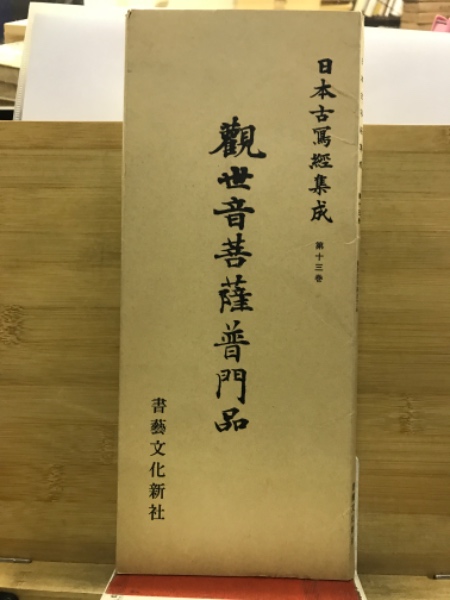 日本古寫經集成
第十三巻
觀世音菩薩普門品
書藝文化新社